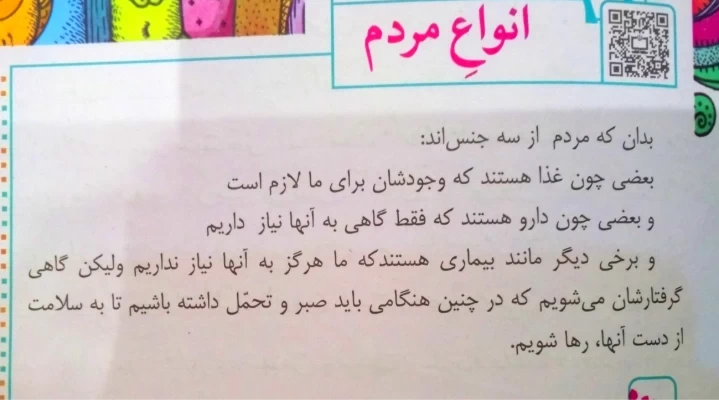 انواعِ مردم
بدان که مردم از سه جنس‌اند:
بعضی چون غذا هستند که وجودشان برای ما لازم است
و بعضی چون دارو هستند که فقط گاهی به آنها نیاز داریم
و برخی دیگر مانند بیماری هستندکه ما هرگز به آنها نیاز نداریم ولیکن گاهی
گرفتارشان می‌شویم که در چنین هنگامی باید صبر و تحمّل داشته باشیم تا به سلامت
از دست آنها، رها شویم.